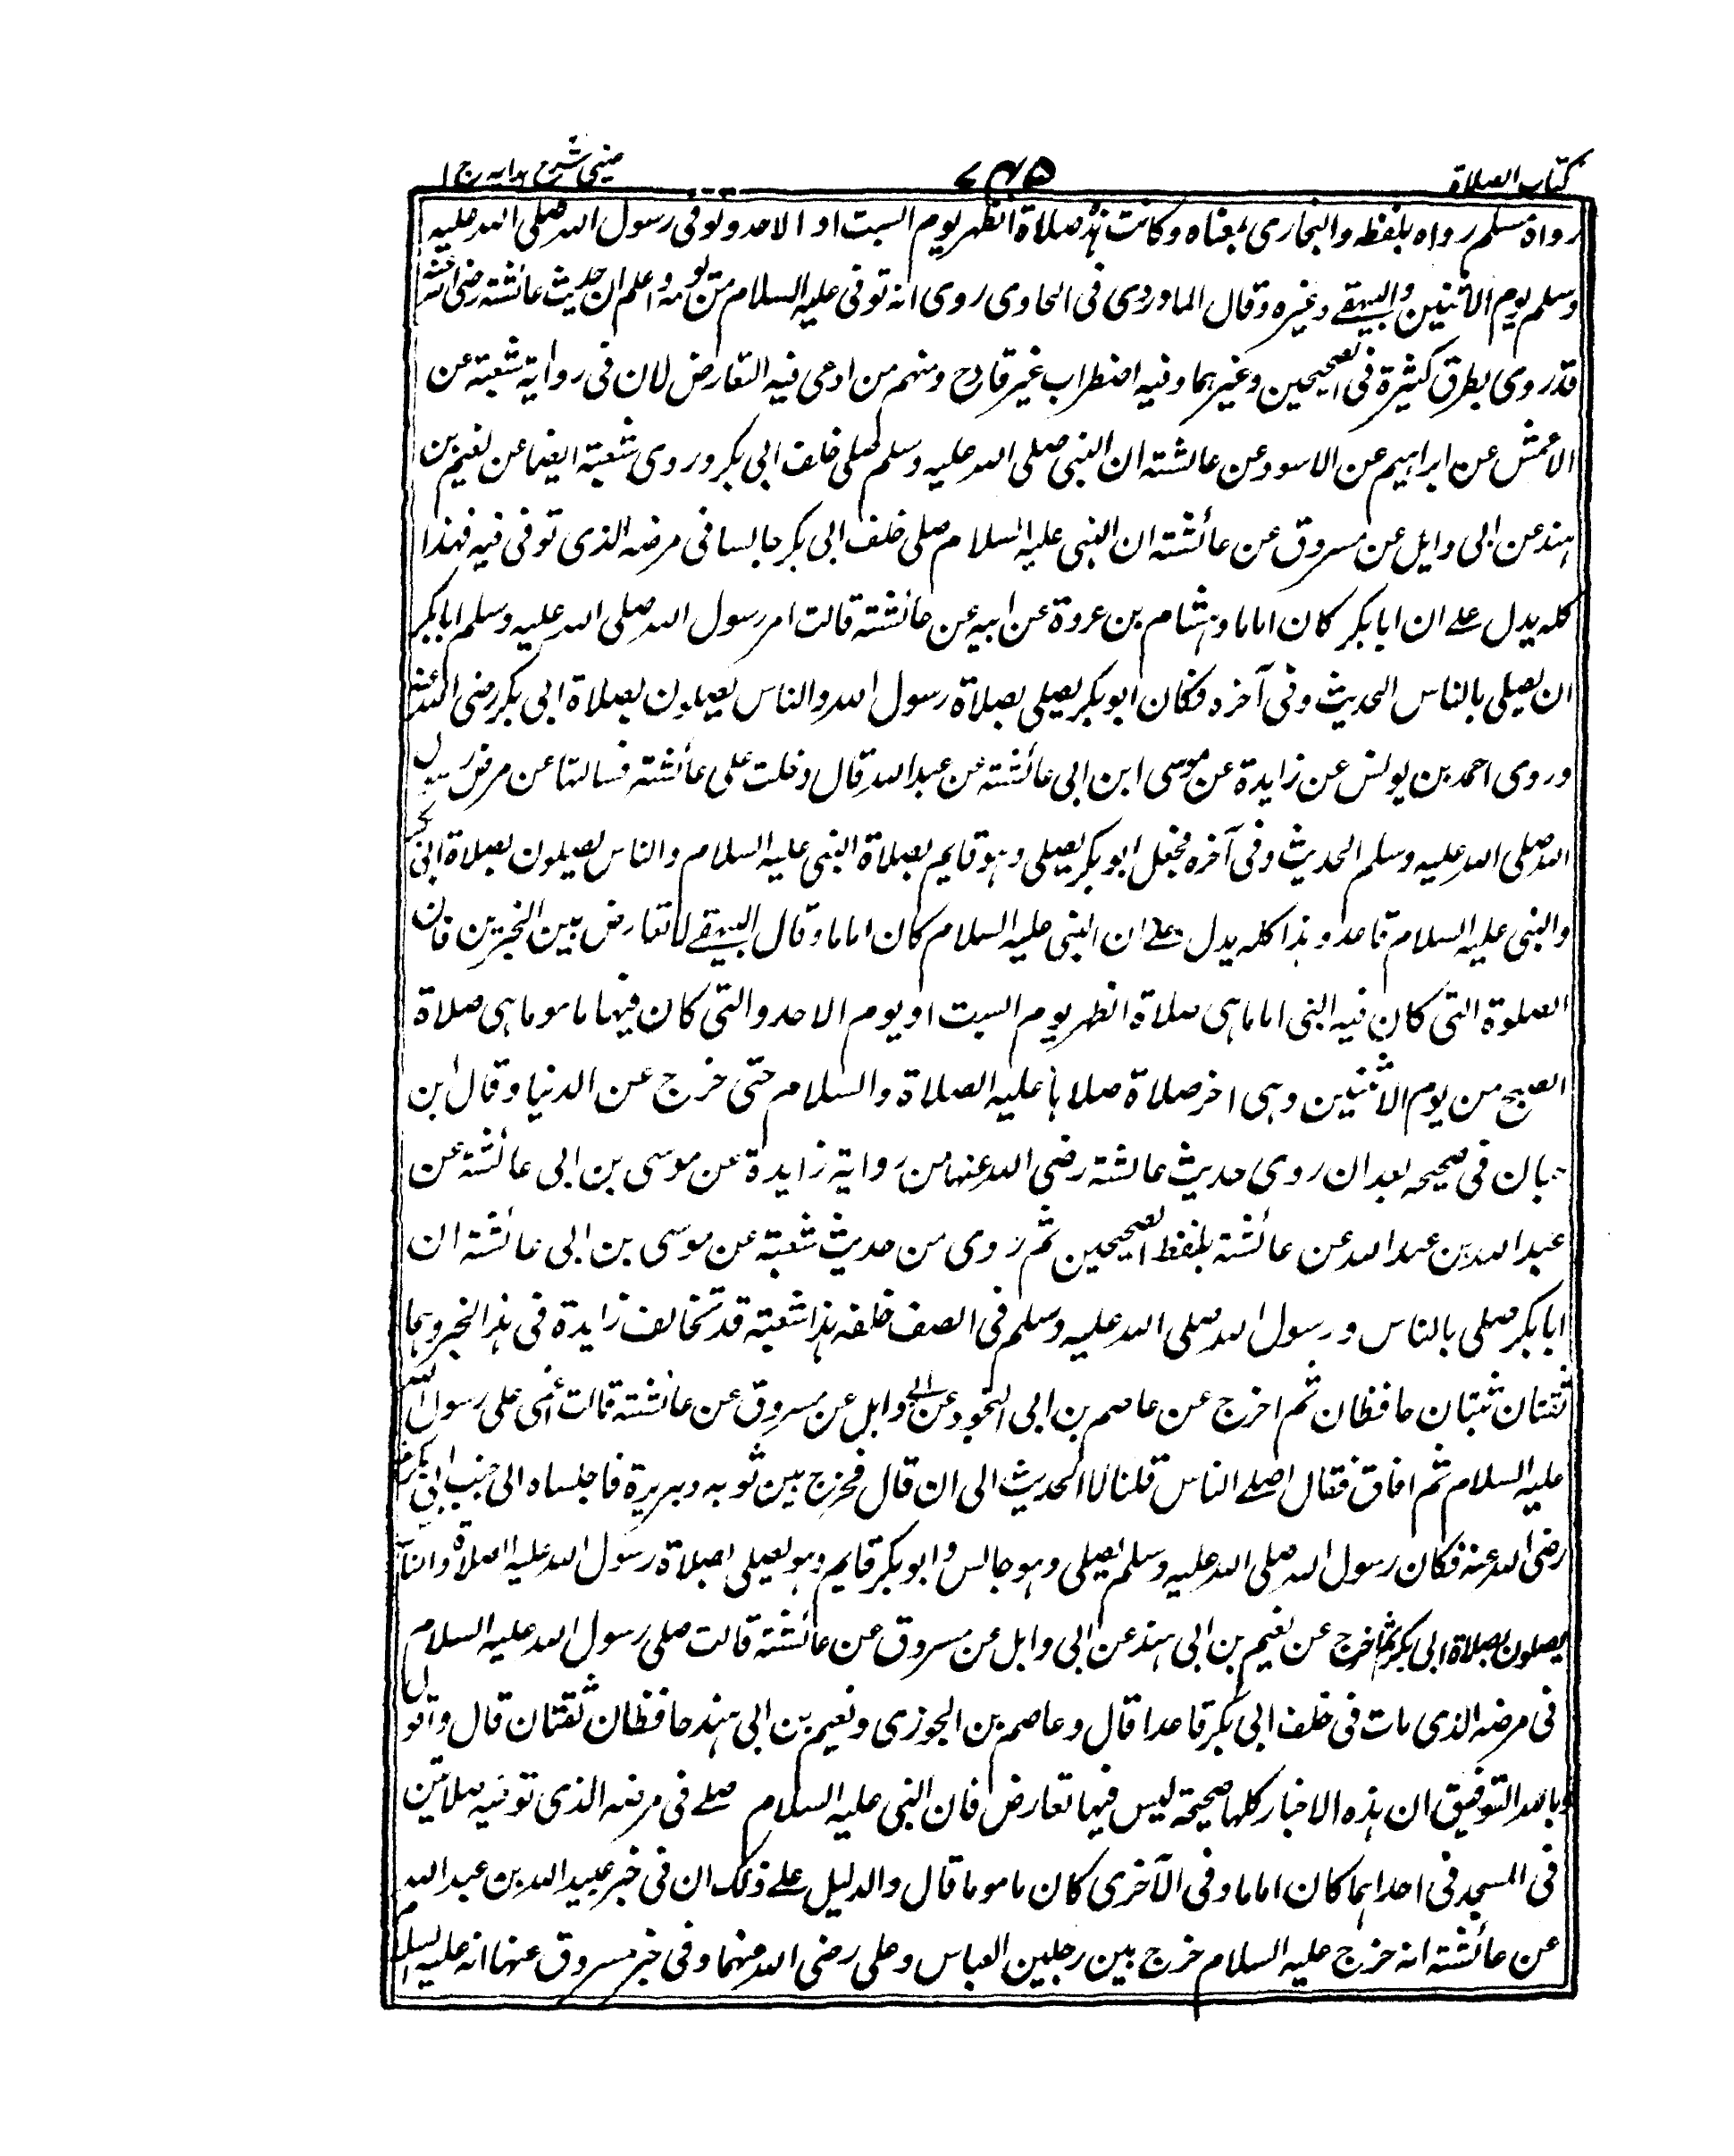 كتاب الصلاة
٧٤٥
عینی شرح ہدایہ ج ١
رواه مسلم رواه بلفظه والبخاری بمعناه وكانت هذه صلاة الظهر يوم السبت او الاحد وتوفی رسول الله صلی الله علیه
وسلم يوم الاثنین والبیهقے وغیره وقال الماوردی فی الحاوی روی انه توفی علیه السلام من يومه واعلم ان حدیث عائشة رضی الله عنها
قد روی بطرق كثيرة فی الصحیحین وغیرهما وفیه اضطراب غیر قادح ومنهم من ادعی فیه التعارض لان فی رواية شعبة عن
الاعمش عن ابراهیم عن الاسود عن عائشة ان النبی صلی الله علیه وسلم صلی خلف ابی بكر وروی شعبة ایضا عن نعیم بن
هند عن ابی وایل عن مسروق عن عائشة ان النبی علیه السلام صلی خلف ابی بكر جالسا فی مرضه الذی توفی فیه فهذا
كله يدل علے ان ابا بكر كان اماما وهشام بن عروة عن ابیه عن عائشة قالت امر رسول الله صلی الله علیه وسلم ابا بكر
ان یصلی بالناس الحدیث وفی آخره فكان ابو بكر یصلی بصلاة رسول الله والناس یصلون بصلاة ابی بكر رضی الله عنه
وروی احمد بن یونس عن زایدة عن موسی ابن ابی عائشة عن عبد الله قال دخلت علی عائشة فسالتها عن مرض رسول
الله صلی الله علیه وسلم الحدیث وفی آخره فجعل ابو بكر یصلی وهو قایم بصلاة النبی علیه السلام والناس یصلون بصلاة ابی بكر
والنبی علیه السلام قاعد وهذا كله یدل علے ان النبی علیه السلام كان اماما وقال البیهقے لا تعارض بین الخبرین فان
الصلوة التی كان فیه النبی اماما هی صلاة الظهر یوم السبت او یوم الاحد والتی كان فیها ماموما هی صلاة
الصبح من یوم الاثنین وهی اخر صلاة صلاها علیه الصلاة والسلام حتی خرج عن الدنیا وقال ابن
حبان فی صحیحه بعد ان روی حدیث عائشة رضی الله عنها من روایة زایدة عن موسی بن ابی عائشة عن
عبد الله بن عبد الله عن عائشة بلفظ الصحیحین ثم روی من حدیث شعبة عن موسی بن ابی عائشة ان
ابا بكر صلی بالناس ورسول الله صلی الله علیه وسلم فی الصف خلفه هذا شعبة قد تخالف زایدة فی هذا الخبر وهما
ثقتان ثبتان حافظان ثم اخرج عن عاصم بن ابی النجود عن ابی وایل عن مسروق عن عائشة قالت أغمی علی رسول الله
علیه السلام ثم افاق فقال اصلے الناس قلنا لا الحدیث الی ان قال فخرج بین ثوبه وبریرة فاجلساه الی جنب ابی بكر
رضی الله عنه فكان رسول الله صلی الله علیه وسلم یصلی وهو جالس وابو بكر قایم وهو یصلی بصلاة رسول الله علیه الصلاة والناس
یصلون بصلاة ابی بكر ثم اخرج عن نعیم بن ابی هند عن ابی وایل عن مسروق عن عائشة قالت صلی رسول الله علیه السلام
فی مرضه الذی مات فی خلف ابی بكر قاعدا قال وعاصم بن الجوزی ونعیم بن ابی هند حافظان ثقتان قال واقول
وبالله التوفیق ان هذه الاخبار كلها صحیحة لیس فیها تعارض فان النبی علیه السلام صلے فی مرضه الذی توفیه صلاتین
فی المسجد فی احداهما كان اماما وفی الآخری كان ماموما قال والدلیل علے ذلك ان فی خبر عبید الله بن عبد الله
عن عائشة انه خرج علیه السلام خرج بین رجلین العباس وعلی رضی الله منهما وفی خبر مسروق عنها انه علیه السلام